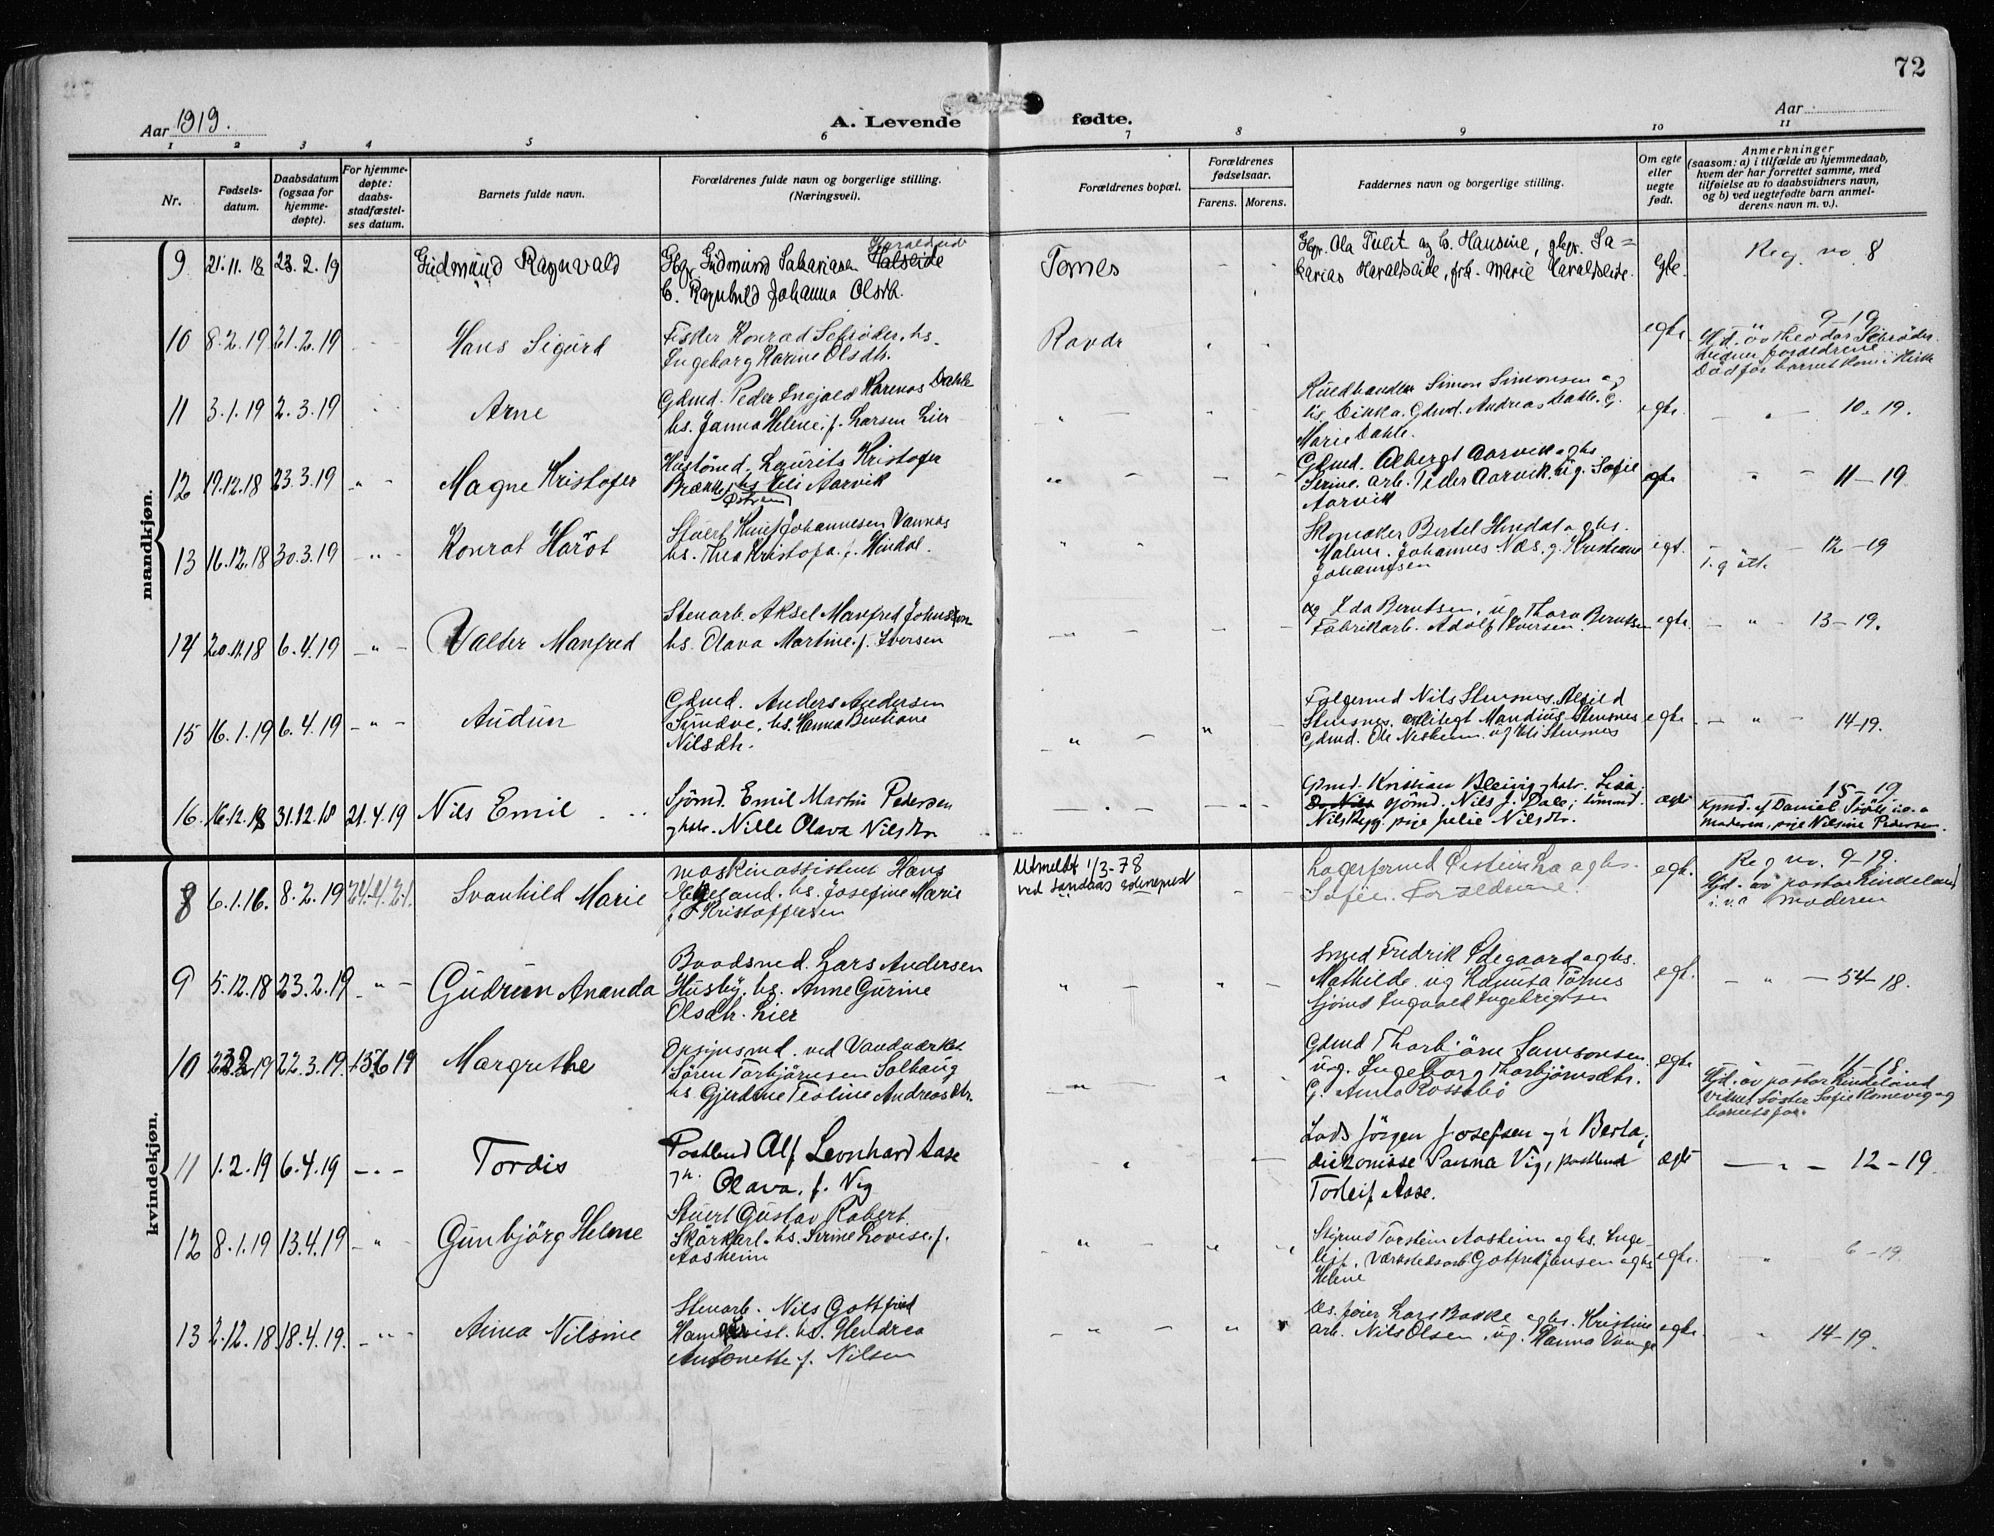 72
Aar 1919.
A. Levende fødte.
Aar
1 2 3 4 5 6 7 8 9 10 11
Nr.
Fødsels-
datum.
Daabsdatum
(ogsaa for
hjemme-
døpte).
For hjemme-
døpte:
daabs-
stadfæstel-
ses datum.
Barnets fulde navn.
Forældrenes fulde navn og borgerlige stilling.
(Næringsvei).
Forældrenes bopæl.
Forældrenes
fødselsaar.
Farens. Morens.
Faddernes navn og borgerlige stilling.
Om egte
eller
uegte
født.
Anmerkninger
(saasom: a) i tilfælde av hjemmedaab,
hvem der har forrettet samme, med
tilføielse av to daabsvidners navn,
og b) ved uegtefødte barn anmel-
derens navn m. v.).
mandkjøn.
9 21.11.18 23.2.19 Gudmund Ragnvald
Gudmund Sakariasen Halseide
Haraldseide
Ragnhild Johanna Olsdtr.
Tornes
Ola Tveit og h. Hansine, Sa=
karias Haraldseide, frk. Marie Haraldseide.
Egte.
Reg. no. 8
10 8.2.19 21.2.19 Hans Sigurd
Fisker Konrad Schrøder. hs.
Ingeborg Karine Olsdtr.
egte
9-19
Hd. av Theodor Schrøder
Vidner foreldrene
Død før barnet kom i Kirke
11 3.1.19 2.3.19 Arne
Gdmd. Peder Ingjald Karenas Dahle
hs. Janna Helene. f. Larsen Lier
Simon Simonsen og
Gdmd. Andreas Dahle. G.
Marie Dahle.
egte. - " - 10-19.
12 19.12.18 23.3.19 " - Magne Kristofer
Husmd. Laurits Kristofer
Brække, hs. Aarvik
Gdmd. Albergt Aarvik og hs.
Serine. arb. Peder Aarvik. ug. Sofie
Aarvik
egte " - 11-19
13 16.12.18 30.3.19 - " - Konrat Harøt
Stuert Knut Johannesen Vannes
hs. Thea Kristofa. f. Hindal.
Skomaker Bertel Hindal og hs.
Malene. Johannes Næs. g. Kristiane
Johannesen
egt. - 12-19
14 20.11.18 6.4.19 - " - Valter Manfred
Stenarb. Aksel Manfred Johnson
hs. Olava Martine. f. Iversen
og Ida Berntsen, ug Thora Berntsen
Fabrikarb. Adolf Iversen.
egte. - " - 13-19.
15 16.1.19 6.4.19 - " - Audun
Gdmd. Anders Andersen
Sundve. hs. Hanna Benthane
Nilsdtr.
Følgemd Nils Stensnes. Alfild
Stensnes, Mandius Stensnes
Gdmd. Ole Nesheim. ug Stensnes
egte - " - 14-19.
16. 16.12.18 31.12.18 21.4.19 Nils Emil
Sjømd. Emil Martin Pedersen
og hstr. Nille Olava Nilsdtr
Gmd. Kristian Bleivig og hstr. Lisa,
sjømd. Nils J. Dale, tømmd.
Nils pige Julie Nilsdtr.
ægte
15-19
Daniel
moderen, pige Nilsine Pedersen.
kvindekjøn.
8 6.1.16. 8.2.19 24.4.21. Svanhild Marie
maskinassistent Hans
Helgeland. hs. Josefine Marie
f. Kristoffersen
Utmeldt 1/3-78
ved Sandaas sokneprest
Lagerformd Østein Lia og hs.
Sofie. Forældrene.
egt.
Reg no. 9-19.
Hjd. av pastor Lindeland
moderen
9 5.12.18 23.2.19 - " - Gudrun Amanda
Baadsmd. Lars Andersen
Husby. hs. Anne Gurine
Olsdtr. Lier
Smed Fredrik Ødegaard og hs.
Mathilde. ug Tørnes
Sjømd Ingvald Ingebrigtsen
egt. - " - 54-18.
10 22.3.19. 1376 19 Margrethe
Opsynsmd. ved Vandværket
Søren Torbjørnsen Solhaug
hs Gjertine Teoline Andreasdtr.
Gdmd Thorbjørn Samsonsen
ug. Ingeborg Thorbjørnsdtr.
G. Anna Rossebø
egte
11-19.
Hjd. av pastor Lindeland
Vidner søster Sofie Romevig og
barnets far.
11 1.2.19 6.4.19 - " - Tordis
Postbud Alf Leonhard Aase
og h. Olava. f. Vig
Lods Jørgen Josefsen og h Berta,
diakonisse Sanna Vig, postbud
Torleif Aase.
ægte - " - 12-19.
12 8.1.19 13.4.19 - " - Gunbjørg Helene
Stuert Gustav Robert
Skårkarl. hs. Serine Lovise. f.
Aasheim
Styrmd Torstein Aasheim og hs. Inge-
Værkstedsarb Gotfred Jensen og hs
Helene
egte. " 6-19.
13 2.12.18 18.4.19. - " - Anna Nilsine
Stenarb. Nils Gottfred
hs. Hendrea
Antonette f. Nilsen
Lars Bakke og hs. Kristine
arb. Nils Olsen, ug. Hanna Vange
egte. " 14-19.